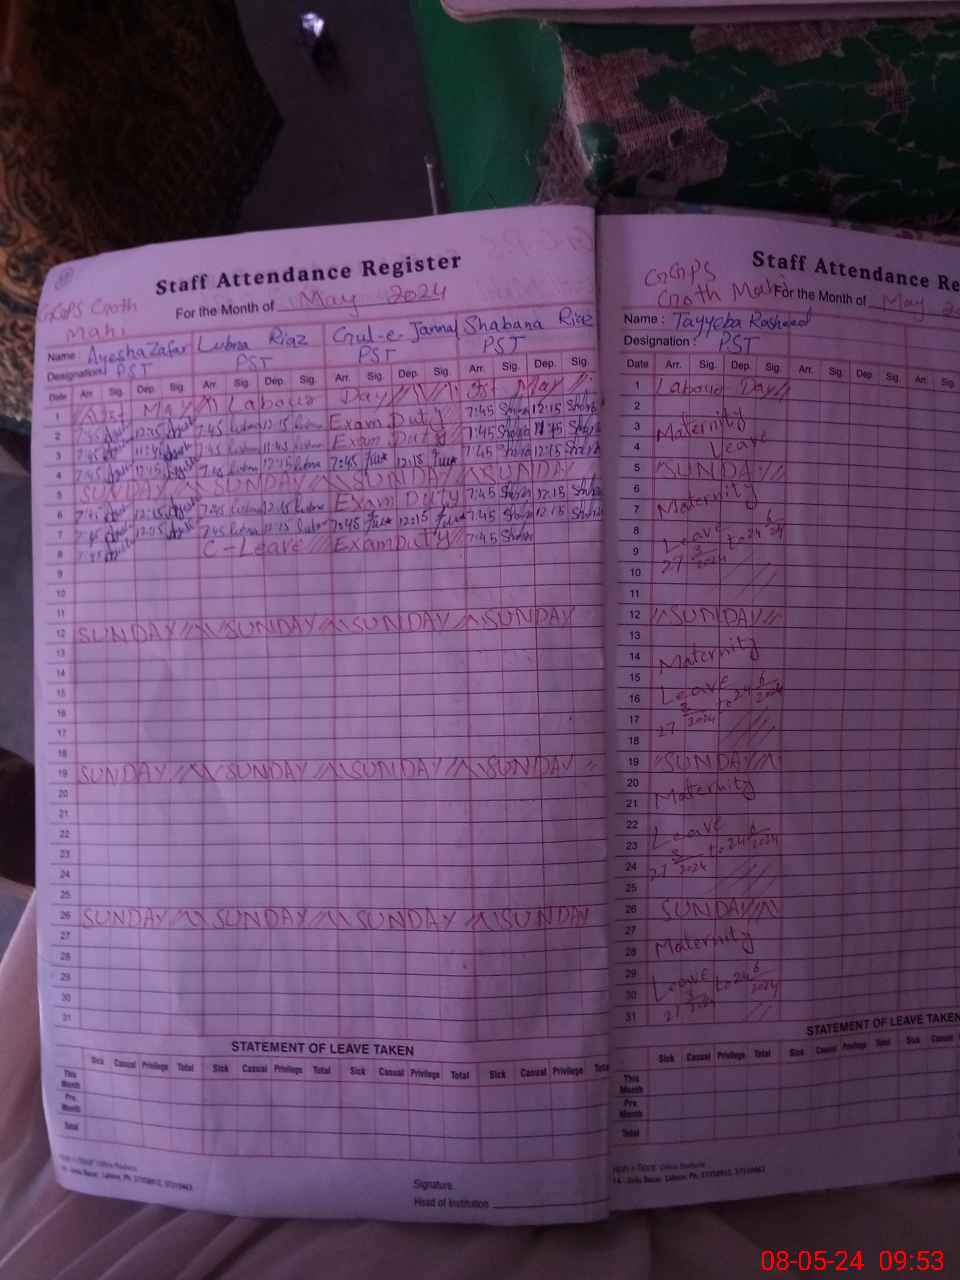 Staff Attendance Register
GGPS Groth
Mahi
For the Month of May 2024
Name : Ayesha Zafar Lubna Riaz Gul-e-Jannat Shabana Riaz
Designation: PST PST PST PST
Date Arr. Sig. Dep. Sig. Arr. Sig. Dep. Sig. Arr. Sig. Dep. Sig. Arr. Sig. Dep. Sig.
1 1st May Labour Day 1st May
2 7:45 12:15 7:45 Lubna 12:15 Lubna Exam Duty 7:45 Shabana 12:15
3 7:45 11:45 7:45 Lubna 11:45 Lubna Exam Duty 7:45 11:45
4 7:45 12:15 7:45 Lubna 12:15 Lubna 7:45 12:15 7:45 12:15
5 SUNDAY SUNDAY SUNDAY SUNDAY
6 7:45 12:15 7:45 Lubna 12:15 Lubna Exam Duty 7:45 12:15
7 7:45 12:15 7:45 Lubna 12:15 Lubna 7:45 12:15 7:45 12:15
8 7:45 C-Leave Exam Duty 7:45
9
10
11
12 SUNDAY SUNDAY SUNDAY SUNDAY
13
14
15
16
17
18
19 SUNDAY SUNDAY SUNDAY SUNDAY
20
21
22
23
24
25
26 SUNDAY SUNDAY SUNDAY SUNDAY
27
28
29
30
31
STATEMENT OF LEAVE TAKEN
Sick Casual Privilege Total Sick Casual Privilege Total Sick Casual Privilege Total Sick Casual Privilege
This Month
Pre. Month
Total
Signature
Head of Institution
Staff Attendance Re
GGPS
Groth Mahi
For the Month of May
Name : Tayyeba Rasheed
Designation : PST
Date Arr. Sig. Dep. Sig. Arr. Sig. Dep. Sig. Arr Sig.
1 Labour Day
2
3 Maternity
4 Leave
5 SUNDAY
6
7 Maternity
8
9 Leave 27 3/2024 to 24 6/24
10
11
12 SUNDAY
13
14 Maternity
15
16 Leave
17 27 3/2024 to 24 6/2024
18
19 SUNDAY
20
21 Maternity
22
23 Leave
24 27 3/2024 to 24 6/2024
25
26 SUNDAY
27
28 Maternity
29
30 Leave to 24 6/2024
31 27 3/2024
STATEMENT OF LEAVE TAKEN
Sick Casual Privilege Total Sick Casual Privilege Total Sick Casual
This Month
Pre. Month
Total
08-05-24 09:53